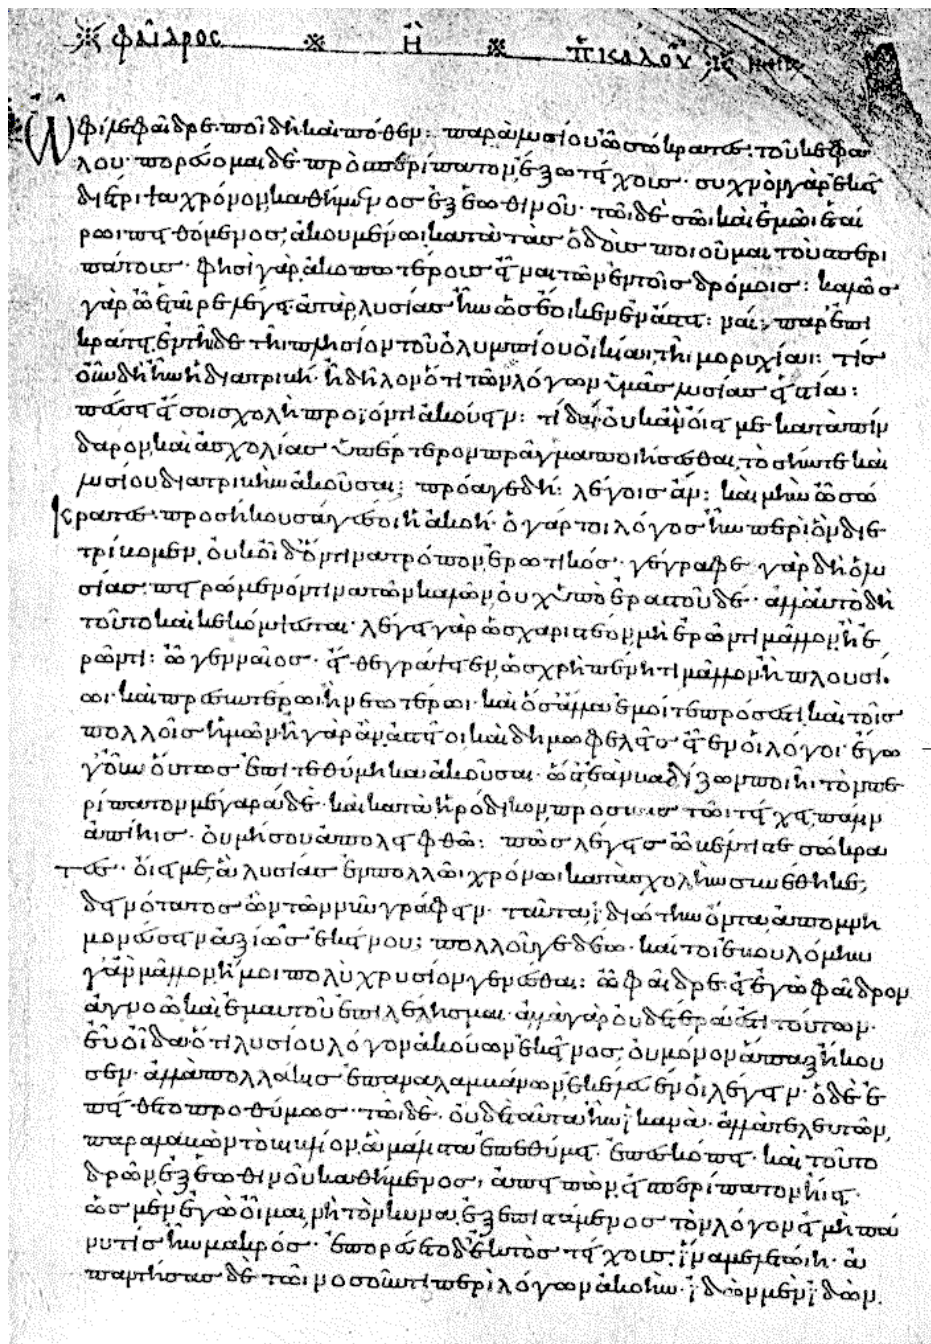 φαῖδρος ἢ π καλοῦ
Ὦ φίλε φαῖδρε· ποῖ δὴ καὶ πόθεν: παρὰ λυσίου ὦ σώκρατες· τοῦ κεφά
λου· πορεύομαι δὲ πρὸς περίπατον ἔξω τείχους· συχνὸν γὰρ ἐκεῖ
διέτριψα χρόνον, καθήμενος ἐξ ἑωθινοῦ· τῶι δὲ σῶι καὶ ἐμῶι ἑταί
ρωι πειθόμενος, ἀκουμενῶι κατὰ τὰς ὁδοὺς ποιοῦμαι τοὺς περι
πάτους· φησὶ γὰρ ἀκοπωτέρους εἶναι τῶν ἐν τοῖς δρόμοις: καλῶς
γὰρ ὦ ἑταῖρε λέγει· ἀτὰρ λυσίας ἦν ὡς ἔοικεν ἐν ἄστει: ναί· παρ' ἐπι
κράτει, ἐν τῆιδε τῆι πλησίον τοῦ ὀλυμπίου οἰκίαι τῆι μορυχίαι: τίς
οὖν δὴ ἦν ἡ διατριβή· ἢ δῆλον ὅτι τῶν λόγων ὑμᾶς λυσίας εἱστία:
πεύσει εἴ σοι σχολὴ προϊόντι ἀκούειν: τί δαί; οὐκ ἂν οἴει με κατὰ πίν
δαρον, καὶ ἀσχολίας ὑπέρτερον πρᾶγμα ποιήσεσθαι, τὸ σήν τε καὶ
λυσίου διατριβὴν ἀκοῦσαι; πρόαγε δή: λέγοις ἄν: καὶ μὴν ὦ σώ
κρατες· προσήκουσά γέ σοι ἡ ἀκοή· ὁ γάρ τοι λόγος ἦν περὶ ὃν διε
τρίβομεν, οὐκ οἶδ' ὅντινα τρόπον, ἐρωτικός· γέγραφε γὰρ δὴ ὁ λυ
σίας· πειρώμενόν τινα τῶν καλῶν, οὐχ ὑπ' ἐραστοῦ δέ· ἀλλ' αὐτὸ δὴ
τοῦτο καὶ κεκόμψευται· λέγει γὰρ ὡς χαριστέον, μὴ ἐρῶντι μᾶλλον ἢ ἐ
ρῶντι: ὦ γενναῖος· εἴθε γράψειεν, ὡς χρὴ πένητι μᾶλλον ἢ πλουσί
ωι· καὶ πρεσβυτέρωι ἢ νεωτέρωι· καὶ ὅσα ἄλλα ἐμοί τε πρόσεστι, καὶ τοῖς
πολλοῖς ἡμῶν, ἦ γὰρ ἂν ἀστεῖοι καὶ δημωφελεῖς εἶεν οἱ λόγοι· ἔγω
γ' οὖν οὕτως ἐπιτεθύμηκα ἀκοῦσαι· ὥστ' ἐὰν βαδίζων ποιῆι τὸν πε
ρίπατον μέγαράδε· καὶ κατὰ ἡρόδικον, προσβὰς τῶι τείχει, πάλιν
ἀπίηις· οὐ μή σου ἀπολειφθῶ: πῶς λέγεις ὦ βέλτιστε σώκρα
τες· οἴει με, ἃ λυσίας ἐν πολλῶι χρόνωι κατὰ σχολὴν συνέθηκε,
δεινότατος ὢν τῶν νῦν γράφειν· ταῦτα ἰδιώτην ὄντα ἀπομνη
μονεύσειν ἀξίως ἐκείνου; πολλοῦ γε δέω· καί τοι ἐβουλόμην
γ' ἂν μᾶλλον, ἤ μοι πολὺ χρυσίον γενέσθαι: ὦ φαῖδρε· εἰ ἐγὼ φαῖδρον
ἀγνοῶ καὶ ἐμαυτοῦ ἐπιλέλησμαι· ἀλλὰ γὰρ οὐδέτερά ἐστι τούτων·
εὖ οἶδα· ὅτι λυσίου λόγον ἀκούων ἐκεῖνος, οὐ μόνον ἅπαξ ἤκου
σεν· ἀλλὰ πολλάκις ἐπαναλαμβάνων ἐκέλευέν οἱ λέγειν· ὁ δὲ ἐ
πείθετο προθύμως· τῶι δὲ οὐδὲ ταῦτα ἦν ἱκανά· ἀλλὰ τελευτῶν,
παραλαβὼν τὸ βιβλίον, ἃ μάλιστα ἐπεθύμει ἐπεσκόπει· καὶ τοῦτο
δρῶν, ἐξ ἑωθινοῦ καθήμενος, ἀπειπὼν, εἰς περίπατον ἤιει·
ὡς μὲν ἐγὼ οἶμαι, νὴ τὸν κύνα, ἐξεπιστάμενος τὸν λόγον, εἰ μὴ πάυ
νυ τίς ἦν μακρός· ἐπορεύετο δ' ἐκτὸς τείχους, ἵνα μελετώιη· ἀ
παντήσας δὲ τῶι νοσοῦντι περὶ λόγων ἀκοήν· ἰδὼν μὲν ἰδών,